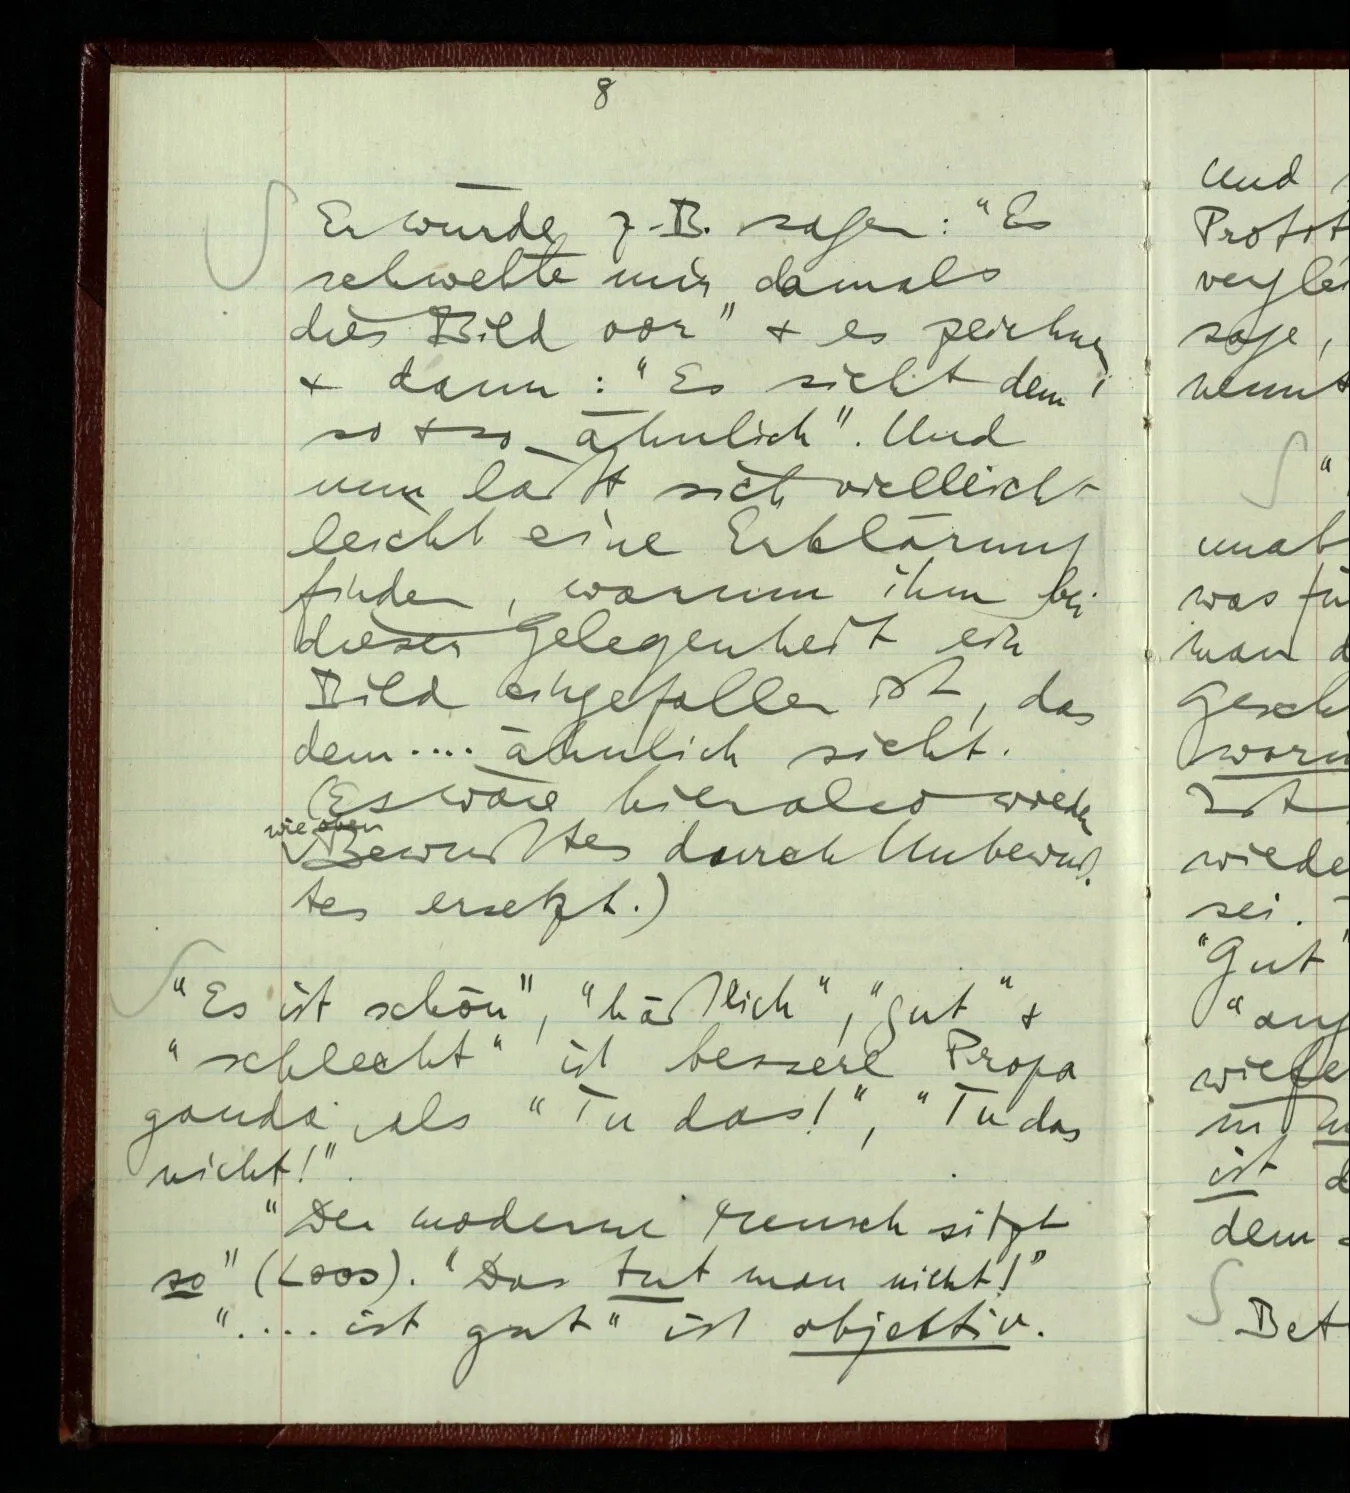 8
Er würde z.B. sagen: "Es
schwebte mir damals
dies Bild vor" + es zeichnen
+ dann: "Es sieht dem
so + so ähnlich". Und
nun läßt sich vielleicht
leicht eine Erklärung
finden, warum ihm bei
dieser Gelegenheit ein
Bild eingefallen ist, das
dem .... ähnlich sieht.
(Es wäre hier also wieder
wie oben
Bewußtes durch Unbewuß-
tes ersetzt.)
"Es ist schön", "häßlich", "gut" +
"schlecht" ist bessere Propa
ganda als "Tu das!", "Tu das
nicht!".
"Der moderne Mensch sitzt
so" (Loos). "Das tut man nicht!"
".... ist gut" ist objektiv.
Und
Profit
verglei
sage,
nennt
"
unab
was fü
man d
Gesch
worin
ist
wiede
sei.
"Gut"
"ang
wiefe
in
ist d
dem
Bet